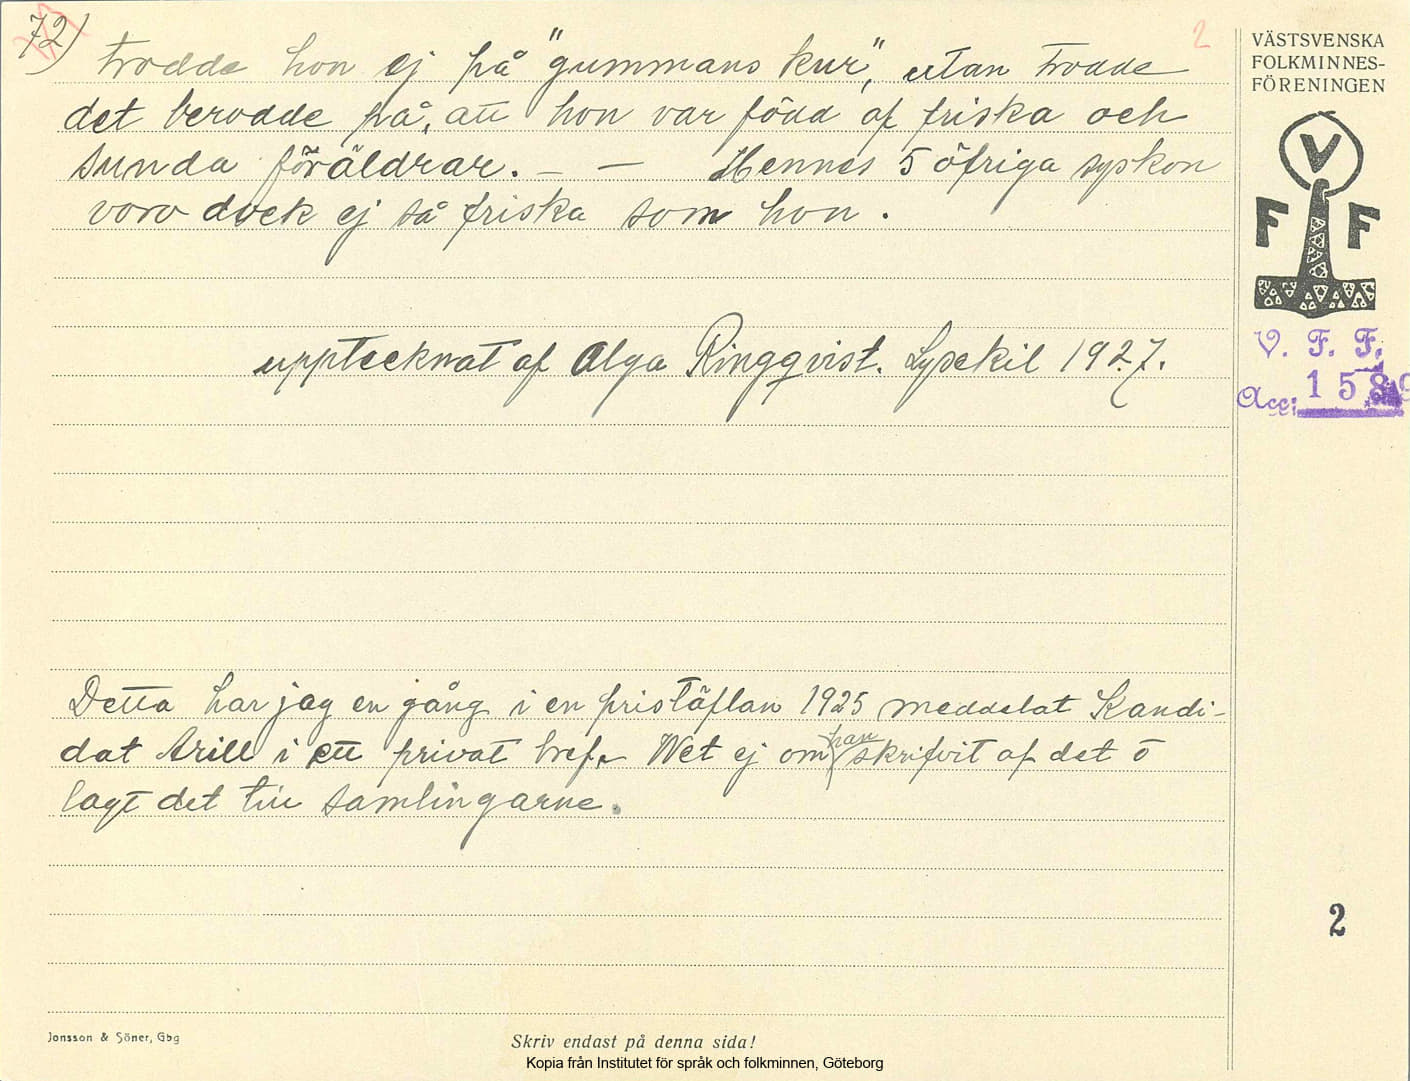 72)
2
trodde hon ej på "gummans kur", utan trodde
det berodde på, att hon var född af friska och
sunda föräldrar. — — Hennes 5 öfriga syskon
voro dock ej så friska som hon.
upptecknat af Olga Ringqvist. Lysekil 1927.
Detta har jag en gång i en pristäflan 1925 meddelat Kandi-
dat Arill i ett privat bref. Wet ej om han skrifvit af det o
lagt det till samlingarne.
VÄSTSVENSKA
FOLKMINNES-
FÖRENINGEN
V
F F
V. F. F.
Acc: 158
2
Jonsson & Söner, Gbg
Skriv endast på denna sida!
Kopia från Institutet för språk och folkminnen, Göteborg